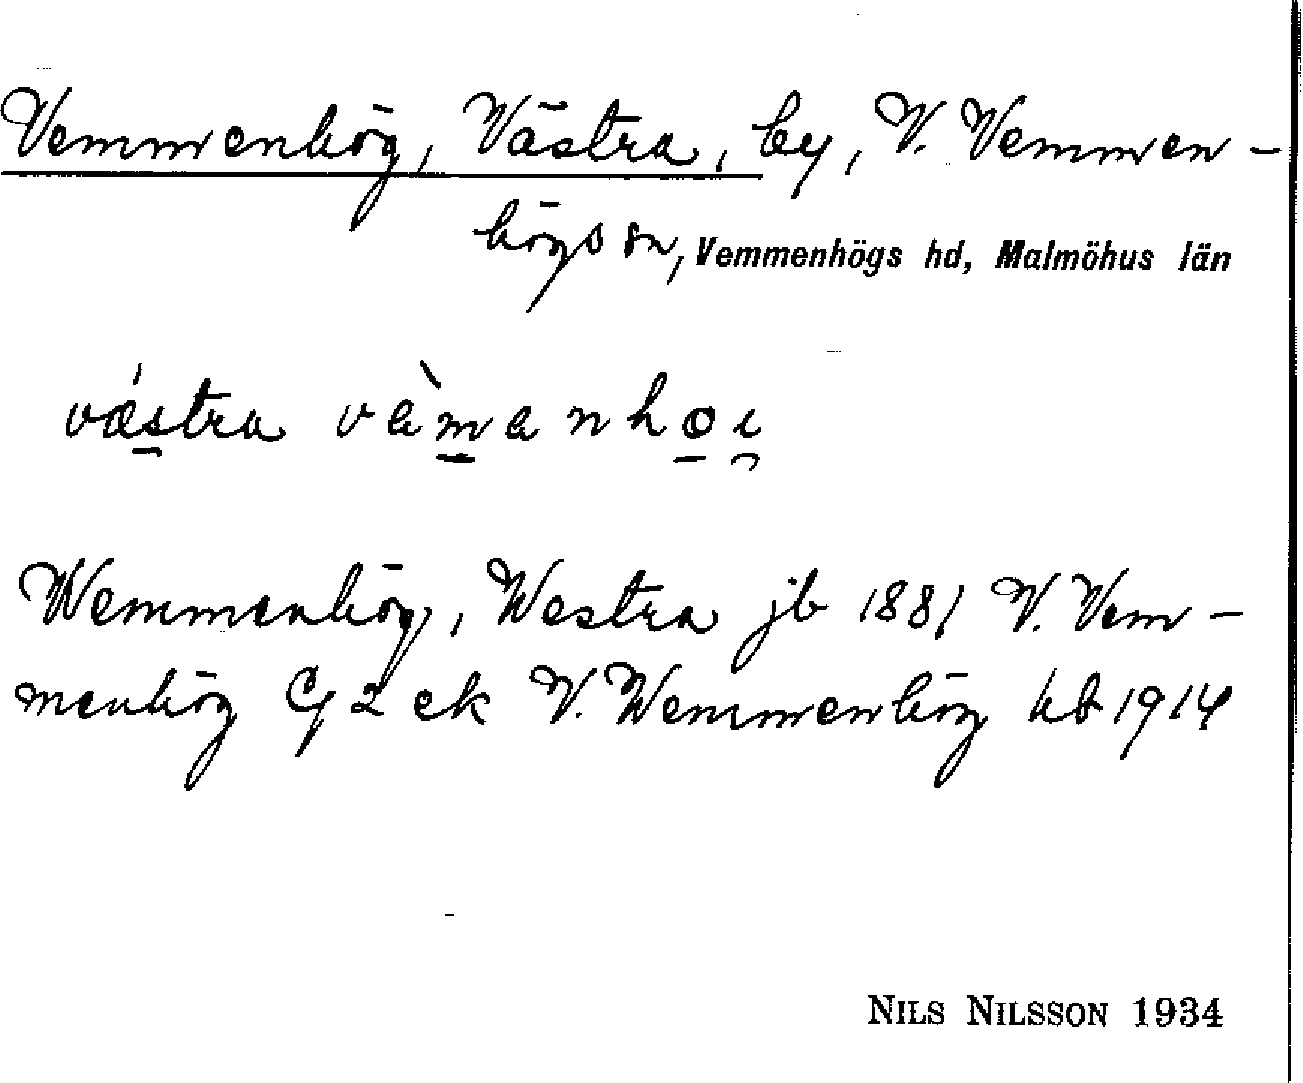 Vemmenhög, Västra, by, V. Vemmen-
högs sn, Vemmenhögs hd, Malmöhus län
västra vàmanhoi
Wemmenhög, Westra jb 1881 V. Vem-
menhög GJ 2 ek V. Wemmenhög kb 1914
NILS NILSSON 1934